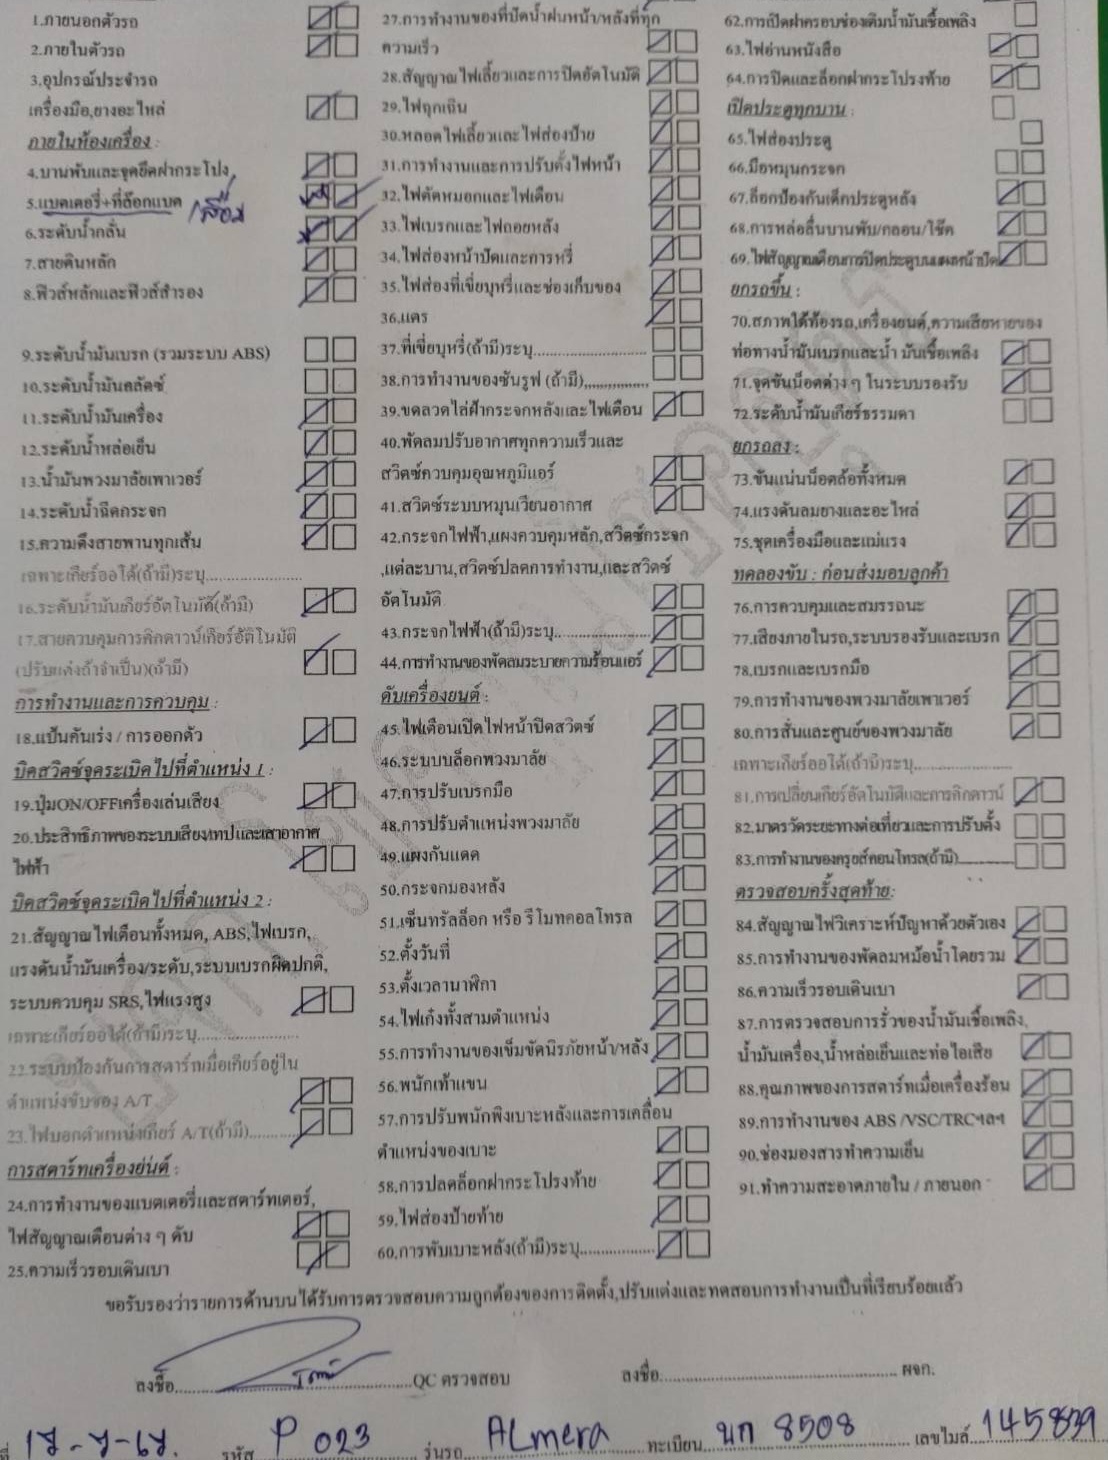 1.ภายนอกตัวรถ
2.ภายในตัวรถ
3.อุปกรณ์ประจำรถ
เครื่องมือ,ยางอะไหล่
ภายในห้องเครื่อง :
4.บานพับและจุดยึดฝากระโปง
5.แบตเตอรี่+ที่ล๊อกแบต
เสื่อม
6.ระดับน้ำกลั่น
7.สายดินหลัก
8.ฟิวส์หลักและฟิวส์สำรอง
9.ระดับน้ำมันเบรก (รวมระบบ ABS)
10.ระดับน้ำมันคลัตช์
11.ระดับน้ำมันเครื่อง
12.ระดับน้ำหล่อเย็น
13.น้ำมันพวงมาลัยเพาเวอร์
14.ระดับน้ำฉีดกระจก
15.ความตึงสายพานทุกเส้น
เฉพาะเกียร์ออโต้(ถ้ามี)ระบุ........................
16.ระดับน้ำมันเกียร์อัตโนมัติ(ถ้ามี)
17.สายควบคุมการคิกดาวน์เกียร์อัติโนมัติ
(ปรับแต่งถ้าจำเป็น)(ถ้ามี)
การทำงานและการควบคุม :
18.แป้นคันเร่ง / การออกตัว
บิดสวิตซ์จุดระเบิดไปที่ตำแหน่ง 1 :
19.ปุ่มON/OFFเครื่องเล่นเสียง
20.ประสิทธิภาพของระบบเสียง/เทปและเสาอากาศ
ไฟฟ้า
บิดสวิตซ์จุดระเบิดไปที่ตำแหน่ง 2 :
21.สัญญาณไฟเตือนทั้งหมด, ABS,ไฟเบรก,
แรงดันน้ำมันเครื่อง/ระดับ,ระบบเบรกผิดปกติ,
ระบบควบคุม SRS,ไฟแรงสูง
เฉพาะเกียร์ออโต้(ถ้ามี)ระบุ........................
22.ระบบป้องกันการสตาร์ทเมื่อเกียร์อยู่ใน
ตำแหน่งขับของ A/T
23.ไฟบอกตำแหน่งเกียร์ A/T(ถ้ามี)............
การสตาร์ทเครื่องย่นต์ :
24.การทำงานของแบตเตอรี่และสตาร์ทเตอร์,
ไฟสัญญาณเตือนต่าง ๆ ดับ
25.ความเร็วรอบเดินเบา
27.การทำงานของที่ปัดน้ำฝนหน้า/หลังที่ทุก
ความเร็ว
28.สัญญาณไฟเลี้ยวและการปิดอัตโนมัติ
29.ไฟฉุกเฉิน
30.หลอดไฟเลี้ยวและไฟส่องป้าย
31.การทำงานและการปรับตั้งไฟหน้า
32.ไฟตัดหมอกและไฟเตือน
33.ไฟเบรกและไฟถอยหลัง
34.ไฟส่องหน้าปัดและการหรี่
35.ไฟส่องที่เขี่ยบุหรี่และช่องเก็บของ
36.แตร
37.ที่เขี่ยบุหรี่(ถ้ามี)ระบุ..............................
38.การทำงานของซันรูฟ (ถ้ามี)................
39.ขดลวดไล่ฝ้ากระจกหลังและไฟเตือน
40.พัดลมปรับอากาศทุกความเร็วและ
สวิตซ์ควบคุมอุณหภูมิแอร์
41.สวิตซ์ระบบหมุนเวียนอากาศ
42.กระจกไฟฟ้า,แผงควบคุมหลัก,สวิตซ์กระจก
,แต่ละบาน,สวิตซ์ปลดการทำงาน,และสวิตซ์
อัตโนมัติ
43.กระจกไฟฟ้า(ถ้ามี)ระบุ.........................
44.การทำงานของพัดลมระบายความร้อนแอร์
ดับเครื่องยนต์ :
45.ไฟเตือนเปิดไฟหน้าปิดสวิตซ์
46.ระบบบล็อกพวงมาลัย
47.การปรับเบรกมือ
48.การปรับตำแหน่งพวงมาลัย
49.แผงกันแดด
50.กระจกมองหลัง
51.เซ็นทรัลล็อก หรือ รีโมทคอลโทรล
52.ตั้งวันที่
53.ตั้งเวลานาฬิกา
54.ไฟเก๋งทั้งสามตำแหน่ง
55.การทำงานของเข็มขัดนิรภัยหน้า/หลัง
56.พนักเท้าแขน
57.การปรับพนักพิงเบาะหลังและการเคลื่อน
ตำแหน่งของเบาะ
58.การปลดล็อกฝากระโปรงท้าย
59.ไฟส่องป้ายท้าย
60.การพับเบาะหลัง(ถ้ามี)ระบุ....................
62.การเปิดฝาครอบช่องเติมน้ำมันเชื้อเพลิง
63.ไฟอ่านหนังสือ
64.การปิดและล็อกฝากระโปรงท้าย
เปิดประตูทุกบาน :
65.ไฟส่องประตู
66.มือหมุนกระจก
67.ล็อกป้องกันเด็กประตูหลัง
68.การหล่อลื่นบานพับ/กลอน/โช๊ค
69.ไฟสัญญาณเตือนการปิดประตูบนแผงหน้าปัด
ยกรถขึ้น :
70.สภาพใต้ท้องรถ,เครื่องยนต์,ความเสียหายของ
ท่อทางน้ำมันเบรกและน้ำ มันเชื้อเพลิง
71.จุดขันน็อตต่าง ๆ ในระบบรองรับ
72.ระดับน้ำมันเกียร์ธรรมดา
ยกรถลง :
73.ขันแน่นน็อตล้อทั้งหมด
74.แรงดันลมยางและอะไหล่
75.ชุดเครื่องมือและแม่แรง
ทดลองขับ : ก่อนส่งมอบลูกค้า
76.การควบคุมและสมรรถนะ
77.เสียงภายในรถ,ระบบรองรับและเบรก
78.เบรกและเบรกมือ
79.การทำงานของพวงมาลัยเพาเวอร์
80.การสั่นและศูนย์ของพวงมาลัย
เฉพาะเกียร์ออโต้(ถ้ามี)ระบุ........................
81.การเปลี่ยนเกียร์อัตโนมัติและการคิกดาวน์
82.มาตรวัดระยะทางต่อเที่ยวและการปรับตั้ง
83.การทำงานของครูยส์คอนโทรล(ถ้ามี)..............
ตรวจสอบครั้งสุดท้าย:
84.สัญญาณไฟวิเคราะห์ปัญหาด้วยตัวเอง
85.การทำงานของพัดลมหม้อน้ำโดยรวม
86.ความเร็วรอบเดินเบา
87.การตรวจสอบการรั่วของน้ำมันเชื้อเพลิง,
น้ำมันเครื่อง,น้ำหล่อเย็นและท่อไอเสีย
88.คุณภาพของการสตาร์ทเมื่อเครื่องร้อน
89.การทำงานของ ABS /VSC/TRCฯลฯ
90.ช่องมองสารทำความเย็น
91.ทำความสะอาดภายใน / ภายนอก
ขอรับรองว่ารายการด้านบนได้รับการตรวจสอบความถูกต้องของการติดตั้ง,ปรับแต่งและทดสอบการทำงานเป็นที่เรียบร้อยแล้ว
ลงชื่อ..................................QC ตรวจสอบ
ลงชื่อ.................................................. ผจก.
ที่ 17-7-67. รหัส P 023 รุ่นรถ ALmera ทะเบียน นก 8508 เลขไมล์ 145839